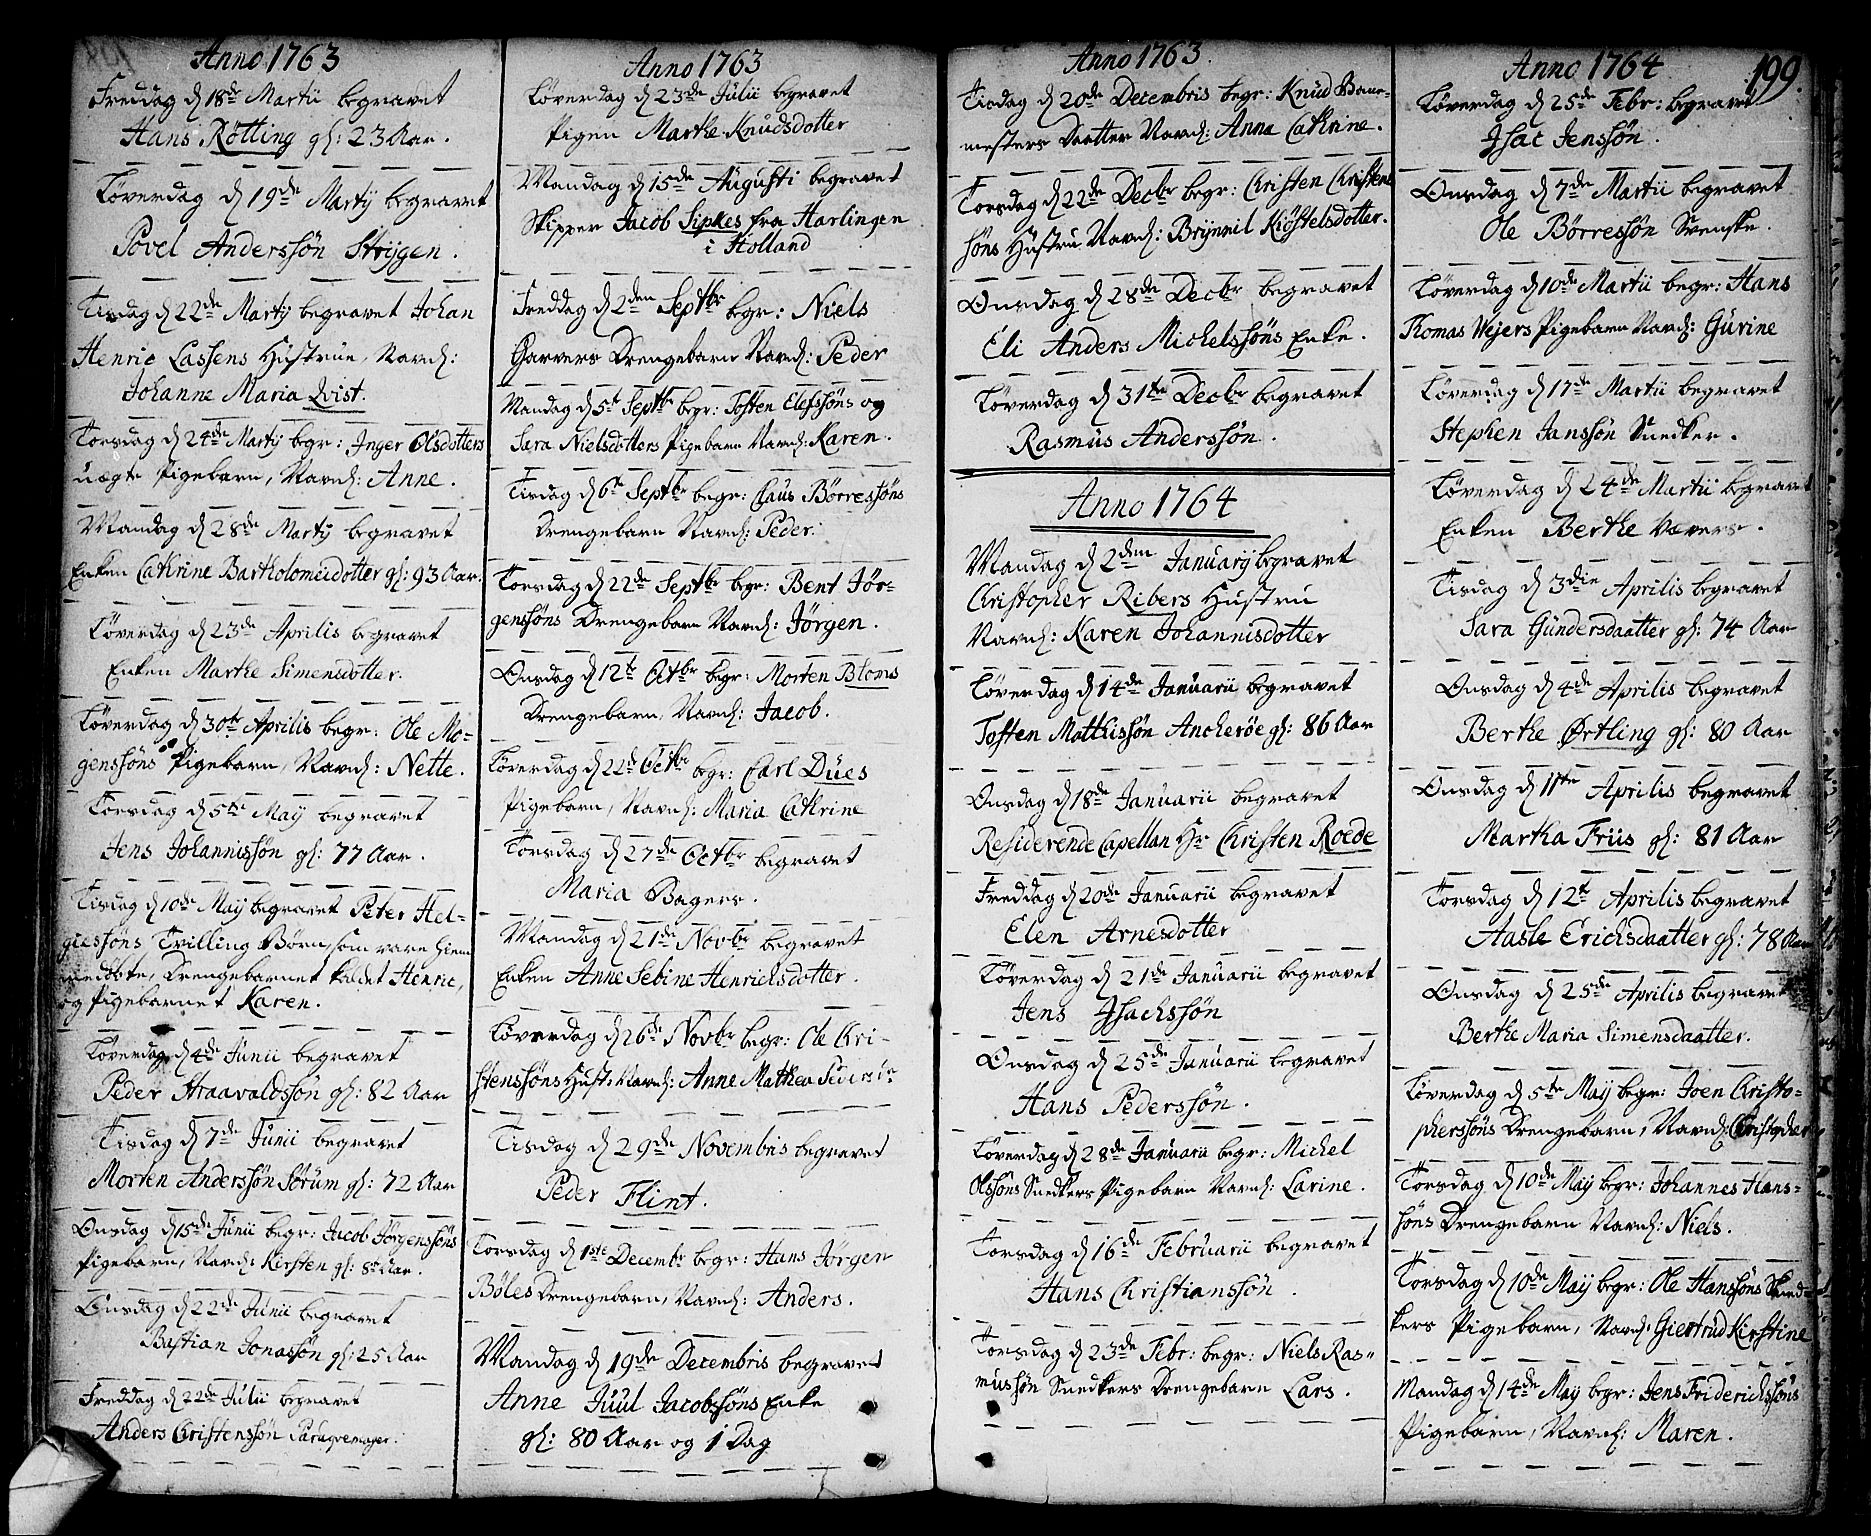 Anno 1763
Freddag d 18de Martii begravet
Hans Rötting gl: 23 Aar.
Löverdag d 19de Martij begravet
Povel Anderssön Strijgen.
Tisdag d 22de Martij begravet Johan
Henric Lassens Hustrue, Navnl:
Johanne Maria Qvist.
Torsdag d 24de Martij begr: Inger Olsdotters
uægte Pigebarn, Navnl: Anne.
Mandag d 28de Martij begravet
Enken Cathrine Bartholomeidotter gl: 93 Aar.
Löverdag d 23de Aprilis begravet
Enken Marthe Simensdotter.
Löverdag d 30te Aprilis begr: Ole Mo-
genssöns Pigebarn, Navnl: Nette.
Torsdag d 5te Maij begravet
Jens Johannissön gl: 77 Aar.
Tisdag d 10de Maij begravet Peter Hel-
giessöns Tvilling Börn, som vare hiem-
medöbte, Drengebarnet kaldet Henric,
og Pigebarnet Karen.
Löverdag d 4de Junii begravet
Peder Haavaldssön gl: 82 Aar
Tisdag d 7de Junii begravet
Morten Anderssön Sörum gl: 72 Aar
Onsdag d 15de Junii begr: Jacob Jörgenssöns
Pigebarn, Navnl: Kirsten gl: 8te Aar.
Onsdag d 22de Junii begravet
Bastian Jonassön gl: 25 Aar
Freddag d 22de Julii begravet
Anders Christenssön

Anno 1763
Löverdag d 23de Julii begravet
Pigen Marthe Knudsdotter
Mandag d 15de Augusti begravet
Skipper Jacob Sipkes fra Harlingen
i Holland
Freddag d 2den Septbr begr: Niels
Garvers Drengebarn Navnl: Peder
Mandag d 5te Septbr begr: Tosten Elefssöns og
Sara Nielsdotters Pigebarn Navnl: Karen.
Tisdag d 6te Septbr begr: Claus Börressöns
Drengebarn Navnl: Peder.
Torsdag d 22de Septbr begr: Bent Jör-
genssöns Drengebarn Navnl: Jörgen.
Onsdag d 12te Octbr begr: Morten Bloms
Drengebarn, Navnl: Jacob.
Löverdag d 22de Octbr begr: Carl Dües
Pigebarn, Navnl: Maria Cathrine
Torsdag d 27de Octbr begravet
Maria Bagers.
Mandag d 21de Novbr begravet
Enken Anne Sebine Henrichsdotter.
Löverdag d 26de Novbr begr: Ole Chri-
stenssöns Hust: Navnl: Anne Mathea
Tisdag d 29de Novembris begravet
Peder Flint.
Torsdag d 1ste Decembr begr: Hans Jörgen
Böles Drengebarn, Navnl: Anders.
Mandag d 19de Decembris begravet
Anne Juul Jacobssöns Enke
gl: 80 Aar og 1 Dag

Anno 1763.
Tisdag d 20de Decembris begr: Knud Bane-
mesters Daatter Navnl: Anna Cathrine.
Torsdag d 22de Decbr begr: Christen Christens
söns Hustru Navnl: Brynnil Kiöstelsdotter.
Onsdag d 28de Decbr begravet
Eli Anders Michelssöns Enke.
Löverdag d 31te Decbr begravet
Rasmus Anderssön.
Anno 1764
Mandag d 2den Januarij begravet
Christopher Ribers Hustru
Navnl: Karen Johannisdotter
Löverdag d 14de Januarii begravet
Tosten Matthissön Ancheröe gl: 86 Aar
Onsdag d 18de Januarii begravet
Residerende Capellan Hr Christen Roede
Freddag d 20de Januarii begravet
Elen Arnesdotter
Löverdag d 21de Januarii begravet
Jens Isachssön
Onsdag d 25de Januarii begravet
Hans Pederssön.
Löverdag d 28de Januarii begr: Michel
Olssöns Snedkers Pigebarn Navnl: Larine.
Torsdag d 16de Februarii begravet
Hans Christianssön.
Torsdag d 23de Febr: begr: Niels Ras-
mussön Snedkers Drengebarn Lars.

Anno 1764
199.
Löverdag d 25de Febr: begravet
Isac Jenssön.
Onsdag d 7de Martii begravet
Ole Börressön Svenske.
Löverdag d 10de Martii begr: Hans
Thomas Vejers Pigebarn Navnl: Gurine
Löverdag d 17de Martii begravet
Stephen Janssön Snedker.
Löverdag d 24de Martii begravet
Enken Berthe Vævers.
Tisdag d 3die Aprilis begravet
Sara Gundersdaatter gl: 74 Aar
Onsdag d 4de Aprilis begravet
Berthe Ørtling gl: 80 Aar
Onsdag d 11te Aprilis begravet
Martha Friis gl: 81 Aar
Torsdag d 12te Aprilis begravet
Aasle Erichsdaatter gl: 78 Aar
Onsdag d 25de Aprilis begravet
Berthe Maria Simensdaatter.
Löverdag d 5te Maij begr: Joen Christo-
pherssöns Drengebarn, Navnl: Christopher
Torsdag d 10de Maij begr: Johannes Hans-
söns Drengebarn Navnl: Niels.
Torsdag d 10de Maij begr: Ole Hanssöns Sned-
kers Pigebarn, Navnl: Giertrud Kirstine
Mandag d 14de Maij begr: Jens Friderichssöns
Pigebarn, Navnl: Maren.